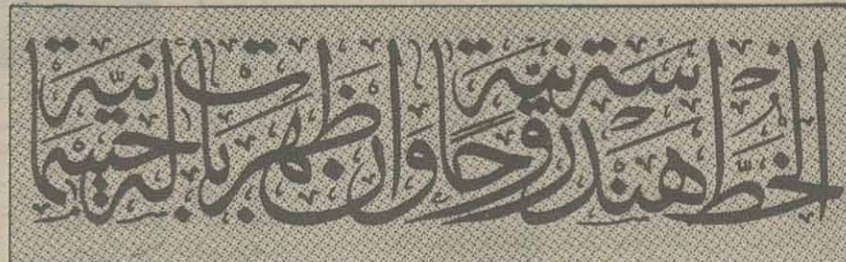 الخط هندسة روحانية وان ظهرت بالة جسمانية